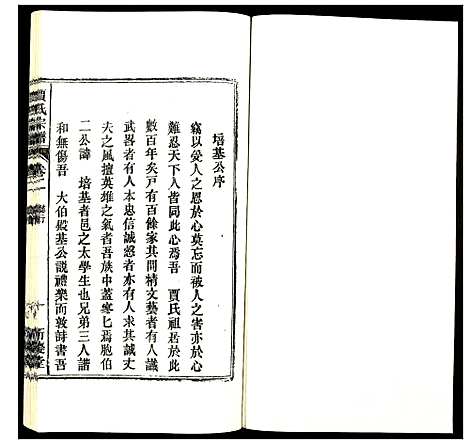 培基公序
竊以受人之恩於心莫忘而被人之害亦於心
難忍天下人皆同此心焉吾 賈氏祖居於此
數百年矣戸有百餘家其間精文藝者有人識
武畧者有人本忠信誠慤者亦有人求其誠丈
夫之風擅英雄之氣者吾族中蓋寥乜焉胞伯
二公諱 培基者邑之太學生也兄弟三人諧
和無傷吾 大伯毅基公説禮樂而敦詩書吾
賈氏宗譜